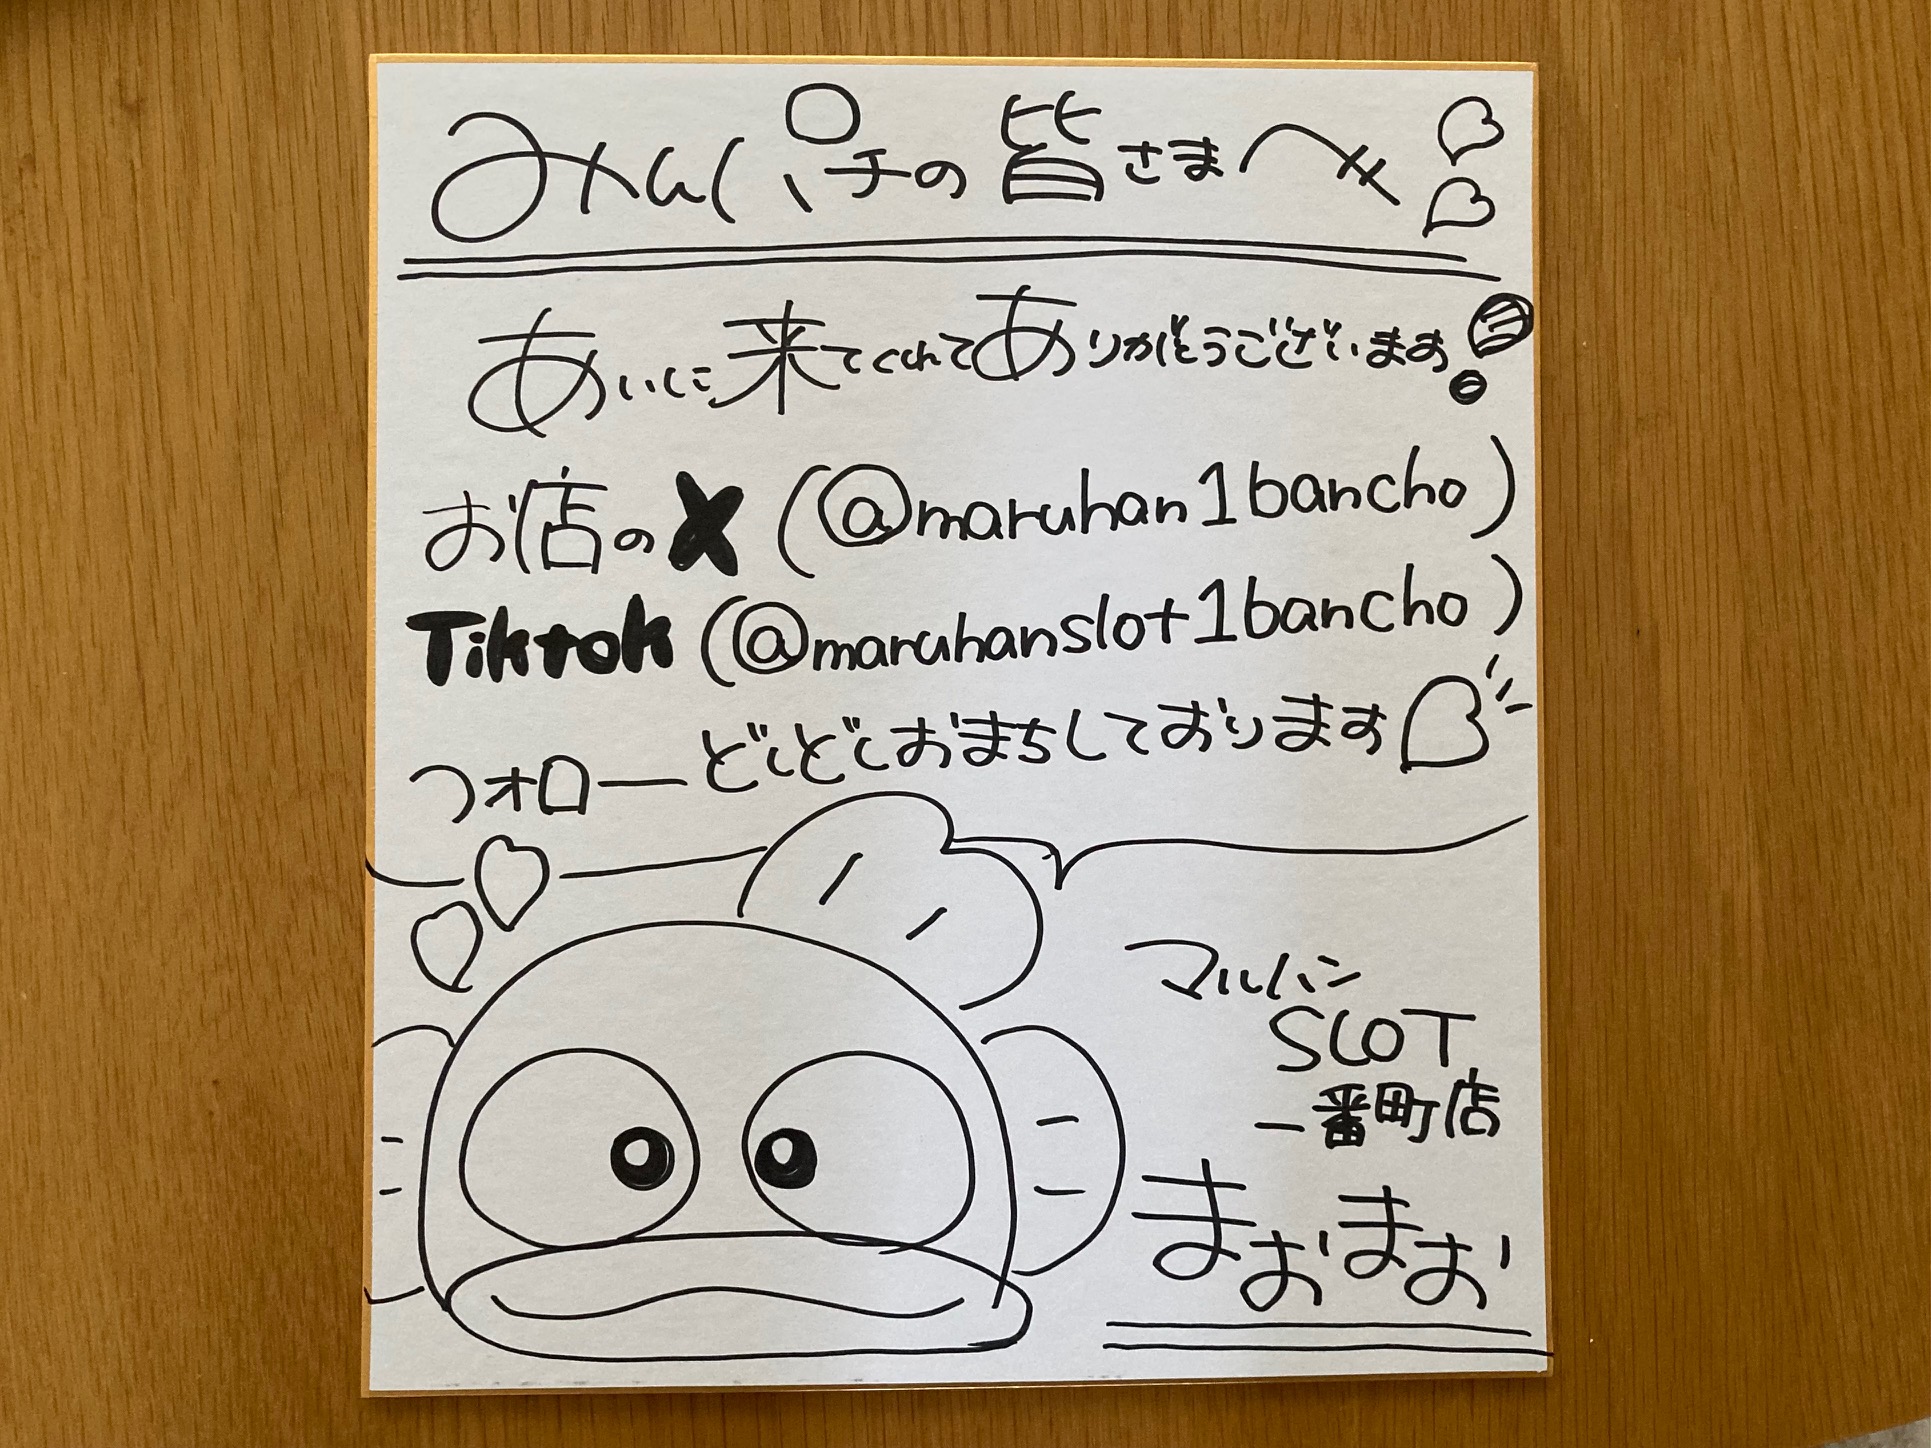 みんパチの皆さまへ
あいに来てくれてありがとうございます!
お店のX (@maruhan1bancho)
Tiktok (@maruhanslot1bancho)
フォローどしどしおまちしております
マルハン
SLOT
一番町店
まおまお